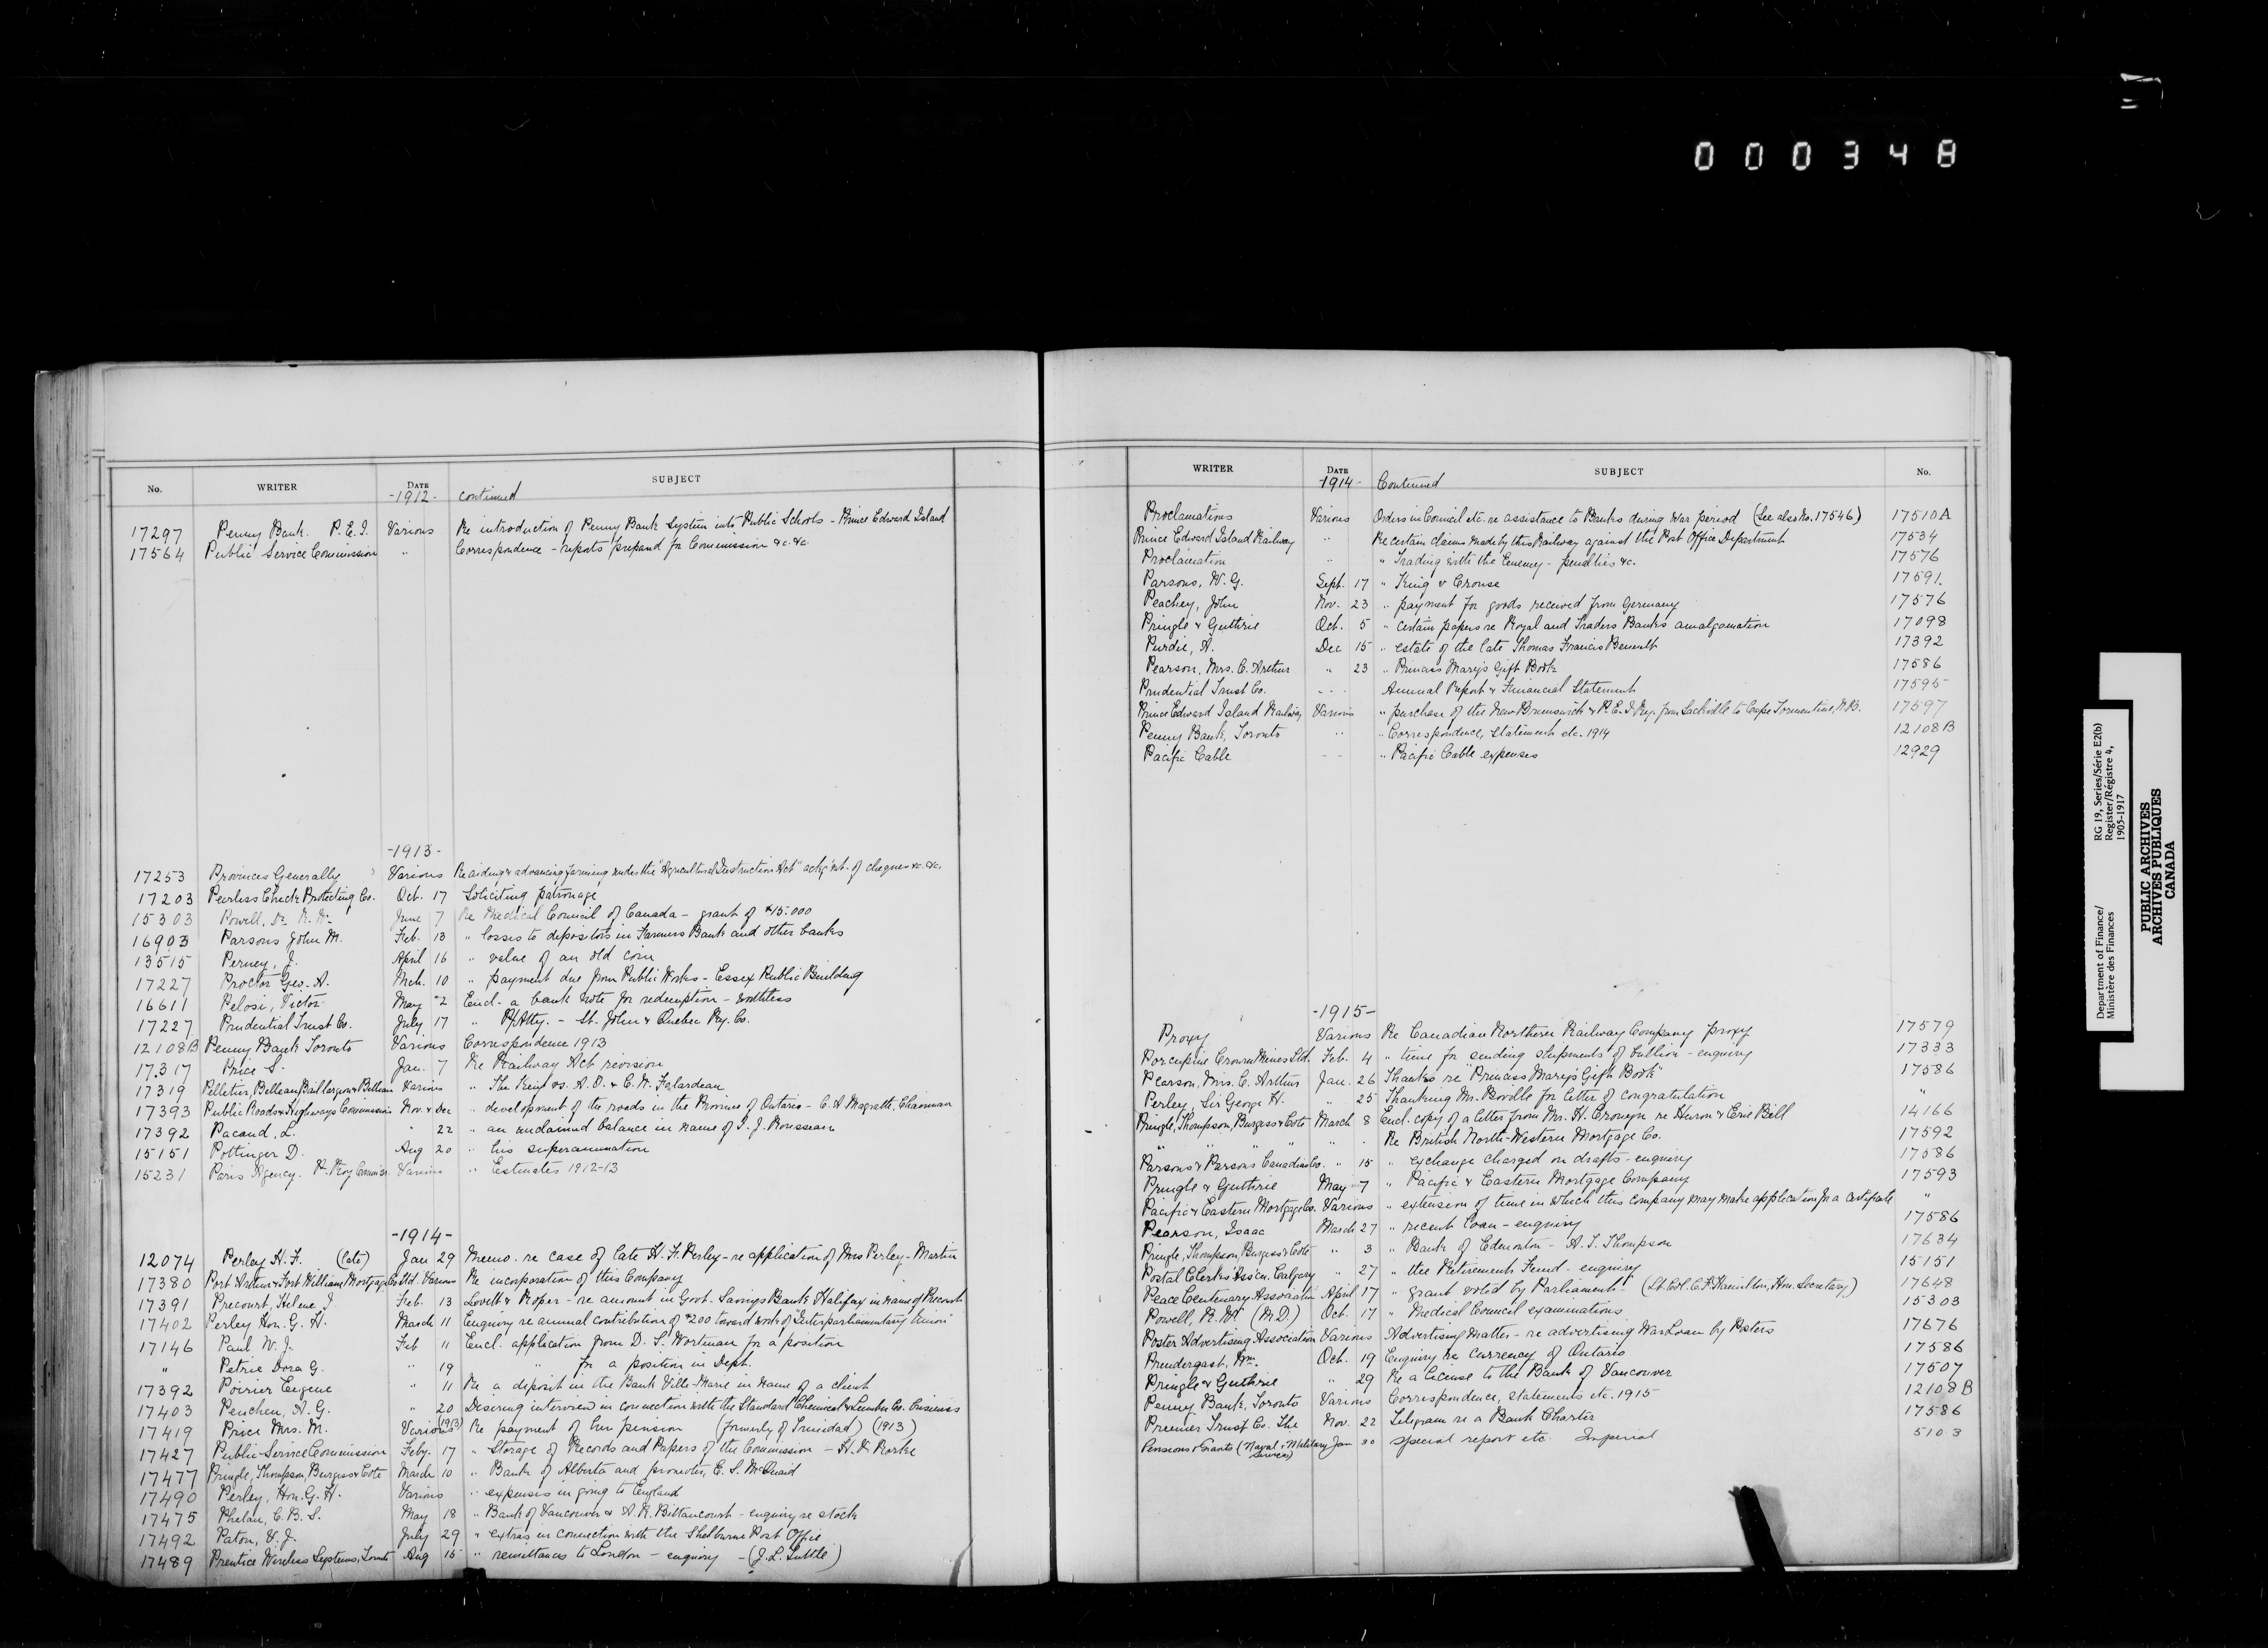 000348
No. WRITER DATE SUBJECT
-1912- continued
17297 Penny Bank. P.E.I. Various Re introduction of Penny Bank System into Public Schools - Prince Edward Island
17564 Public Service Commission " Correspondence - reports prepared for Commission &c. &c
-1913-
17253 Provinces Generally Various Re aiding & advancing farming under the "Agricultural Instruction Act" of cheques &c. &c.
17203 Peerless Check Protecting Co. Oct. 17 Soliciting patronage
15303 Powell, Dr. R. W. June 7 Re Medical Council of Canada - grant of $15.000
16903 Parsons John M. Feb. 13 " losses to depositors in Farmers Bank and other banks
13515 Perney, J. April 16 " value of an old coin
17227 Proctor Geo. A. Mch. 10 " payment due from Public Works - Essex Public Building
16611 Pelosi, Victor May 2 Encl. a bank note for redemption - worthless
17227 Prudential Trust Co. July 17 " P/Atty. - St. John & Quebec Ry. Co.
12108B Penny Bank Toronto Various Correspondence 1913
17317 Price S. Jan. 7 Re Railway Act revision
17319 Pelletier, Belleau, Baillargeon & Belleau Various " The King vs. A. O. & C. N. Falardeau
17393 Public Roads & Highways Commission Nov. & Dec " development of the roads in the Province of Ontario - C. A. Magrath, Chairman
17392 Pacaud, L. " 22 " an unclaimed balance in name of I. J. Rousseau
15151 Pottinger D. Aug 20 " his superannuation
15231 Paris Agency. P. Roy Commisr. Various " Estimates 1912-13
-1914-
12074 Perley H. F. (late) Jan 29 Memo. re case of late H. F. Perley - re application of Mrs Perley-Martin
17380 Port Arthur & Fort William Mortgage Co Ltd. Various Re incorporation of this Company
17391 Precourt, Helene J. Feb. 13 Lovett & Roper - re amount in Govt. Savings Bank Halifax in name of Precourt
17402 Perley Hon. G. H. March 11 Enquiry re annual contribution of $200 toward work of "Interparliamentary Union"
17146 Paul W. J. Feb 11 Encl. application from D. S. Wortman for a position
" Petrie Dora G. " 19 " for a position in Dept.
17392 Poirier Eugene " 11 Re a deposit in the Bank Ville-Marie in name of a client
17403 Peuchen, A. G. " 20 Desiring interview in connection with the Standard Chemical & Lumber Co. business
17419 Price Mrs. M. Various (1913) Re payment of her pension (formerly of Trinidad) (1913)
17427 Public Service Commission Feby. 17 " Storage of Records and Papers of the Commission - H. D. Rorke
17477 Pringle, Thompson, Burgess & Cote March 10 " Bank of Alberta and promoter, E. S. McQuaid
17490 Perley, Hon. G. H. Various " expenses in going to England
17475 Phelan, C. B. S. May 18 " Bank of Vancouver & A. R. Bittancourt - enquiry re stock
17492 Paton, V. J. July 29 " extras in connection with the Shelburne Post Office
17489 Prentice Wireless Systems, Toronto Aug 15 " remittances to London - enquiry - (J. L. Tuttle)
WRITER DATE SUBJECT No.
-1914- Continued
Proclamations Various Orders in Council etc. re assistance to Banks during War period (See also No. 17546) 17510A
Prince Edward Island Railway " Re certain claims made by this Railway against the Post Office Department 17534
Proclamation " " Trading with the Enemy - penalties &c. 17576
Parsons, W. G. Sept. 17 " King v Crouse 17591
Peachey, John Nov. 23 " payment for goods received from Germany 17576
Pringle & Guthrie Oct. 5 " certain papers re Royal and Traders Banks amalgamation 17098
Purdie, A. Dec 15 " estate of the late Thomas Francis 17392
Pearson, Mrs. C. Arthur " 23 " Princess Mary's Gift Book 17586
Prudential Trust Co. - - - Annual Report & Financial Statement 17595
Prince Edward Island Railway Various " purchase of the New Brunswick & P. E. I. Ry. from Sackville to Cape Tormentine, N.B. 17597
Penny Bank, Toronto " " Correspondence, Statements etc. 1914 12108B
Pacific Cable - - " Pacific Cable expenses 12929
-1915-
Proxy Various Re Canadian Northern Railway Company proxy 17579
Porcupine Crown Mines Ltd. Feb. 4 " time for sending shipments of bullion - enquiry 17333
Pearson, Mrs. C. Arthur Jan. 26 Thanks re "Princess Mary's Gift Book" 17586
Perley, Sir George H. " 25 Thanking Mr. Boville for letter of congratulation "
Pringle, Thompson, Burgess & Cote March 8 Encl. copy of a letter from Mr. H. Cronyn re Huron & Erie Bill 14166
" " " " " Re British North-Western Mortgage Co. 17592
Parsons & Parsons Canadian Co. " 15 " exchange charged on drafts - enquiry 17586
Pringle & Guthrie May 7 " Pacific & Eastern Mortgage Company 17593
Pacific & Eastern Mortgage Co. Various " extension of time in which this Company may make application for a certificate "
Pearson, Isaac March 27 " recent loan - enquiry 17586
Pringle, Thompson, Burgess & Cote " 3 " Bank of Edmonton - A. S. Thompson 17634
Postal Clerks' Ass'cn. Calgary " 27 " the Retirement Fund - enquiry 15151
Peace Centenary Association April 17 " grant voted by Parliament - (Lt. Col. C. F. Hamilton, Hon. Secretary) 17648
Powell, R. W. (M.D.) Oct. 17 " Medical Council examinations 15303
Poster Advertising Association Various Advertising Matter - re advertising War Loan by Posters 17676
Prendergast, Wm. Oct. 19 Enquiry re currency of Ontario 17586
Pringle & Guthrie " 29 Re a license to the Bank of Vancouver 17507
Penny Bank, Toronto Various Correspondence, statements etc. 1915 12108B
Premier Trust Co. The Nov. 22 Telegram re a Bank Charter 17586
Pensions & Grants (Naval & Military Services) Jan 30 special report etc. Imperial 5103
Department of Finance/ RG 19, Series/Série E2(b)
Ministère des Finances Register/Régistre 4,
1905-1917
PUBLIC ARCHIVES
ARCHIVES PUBLIQUES
CANADA